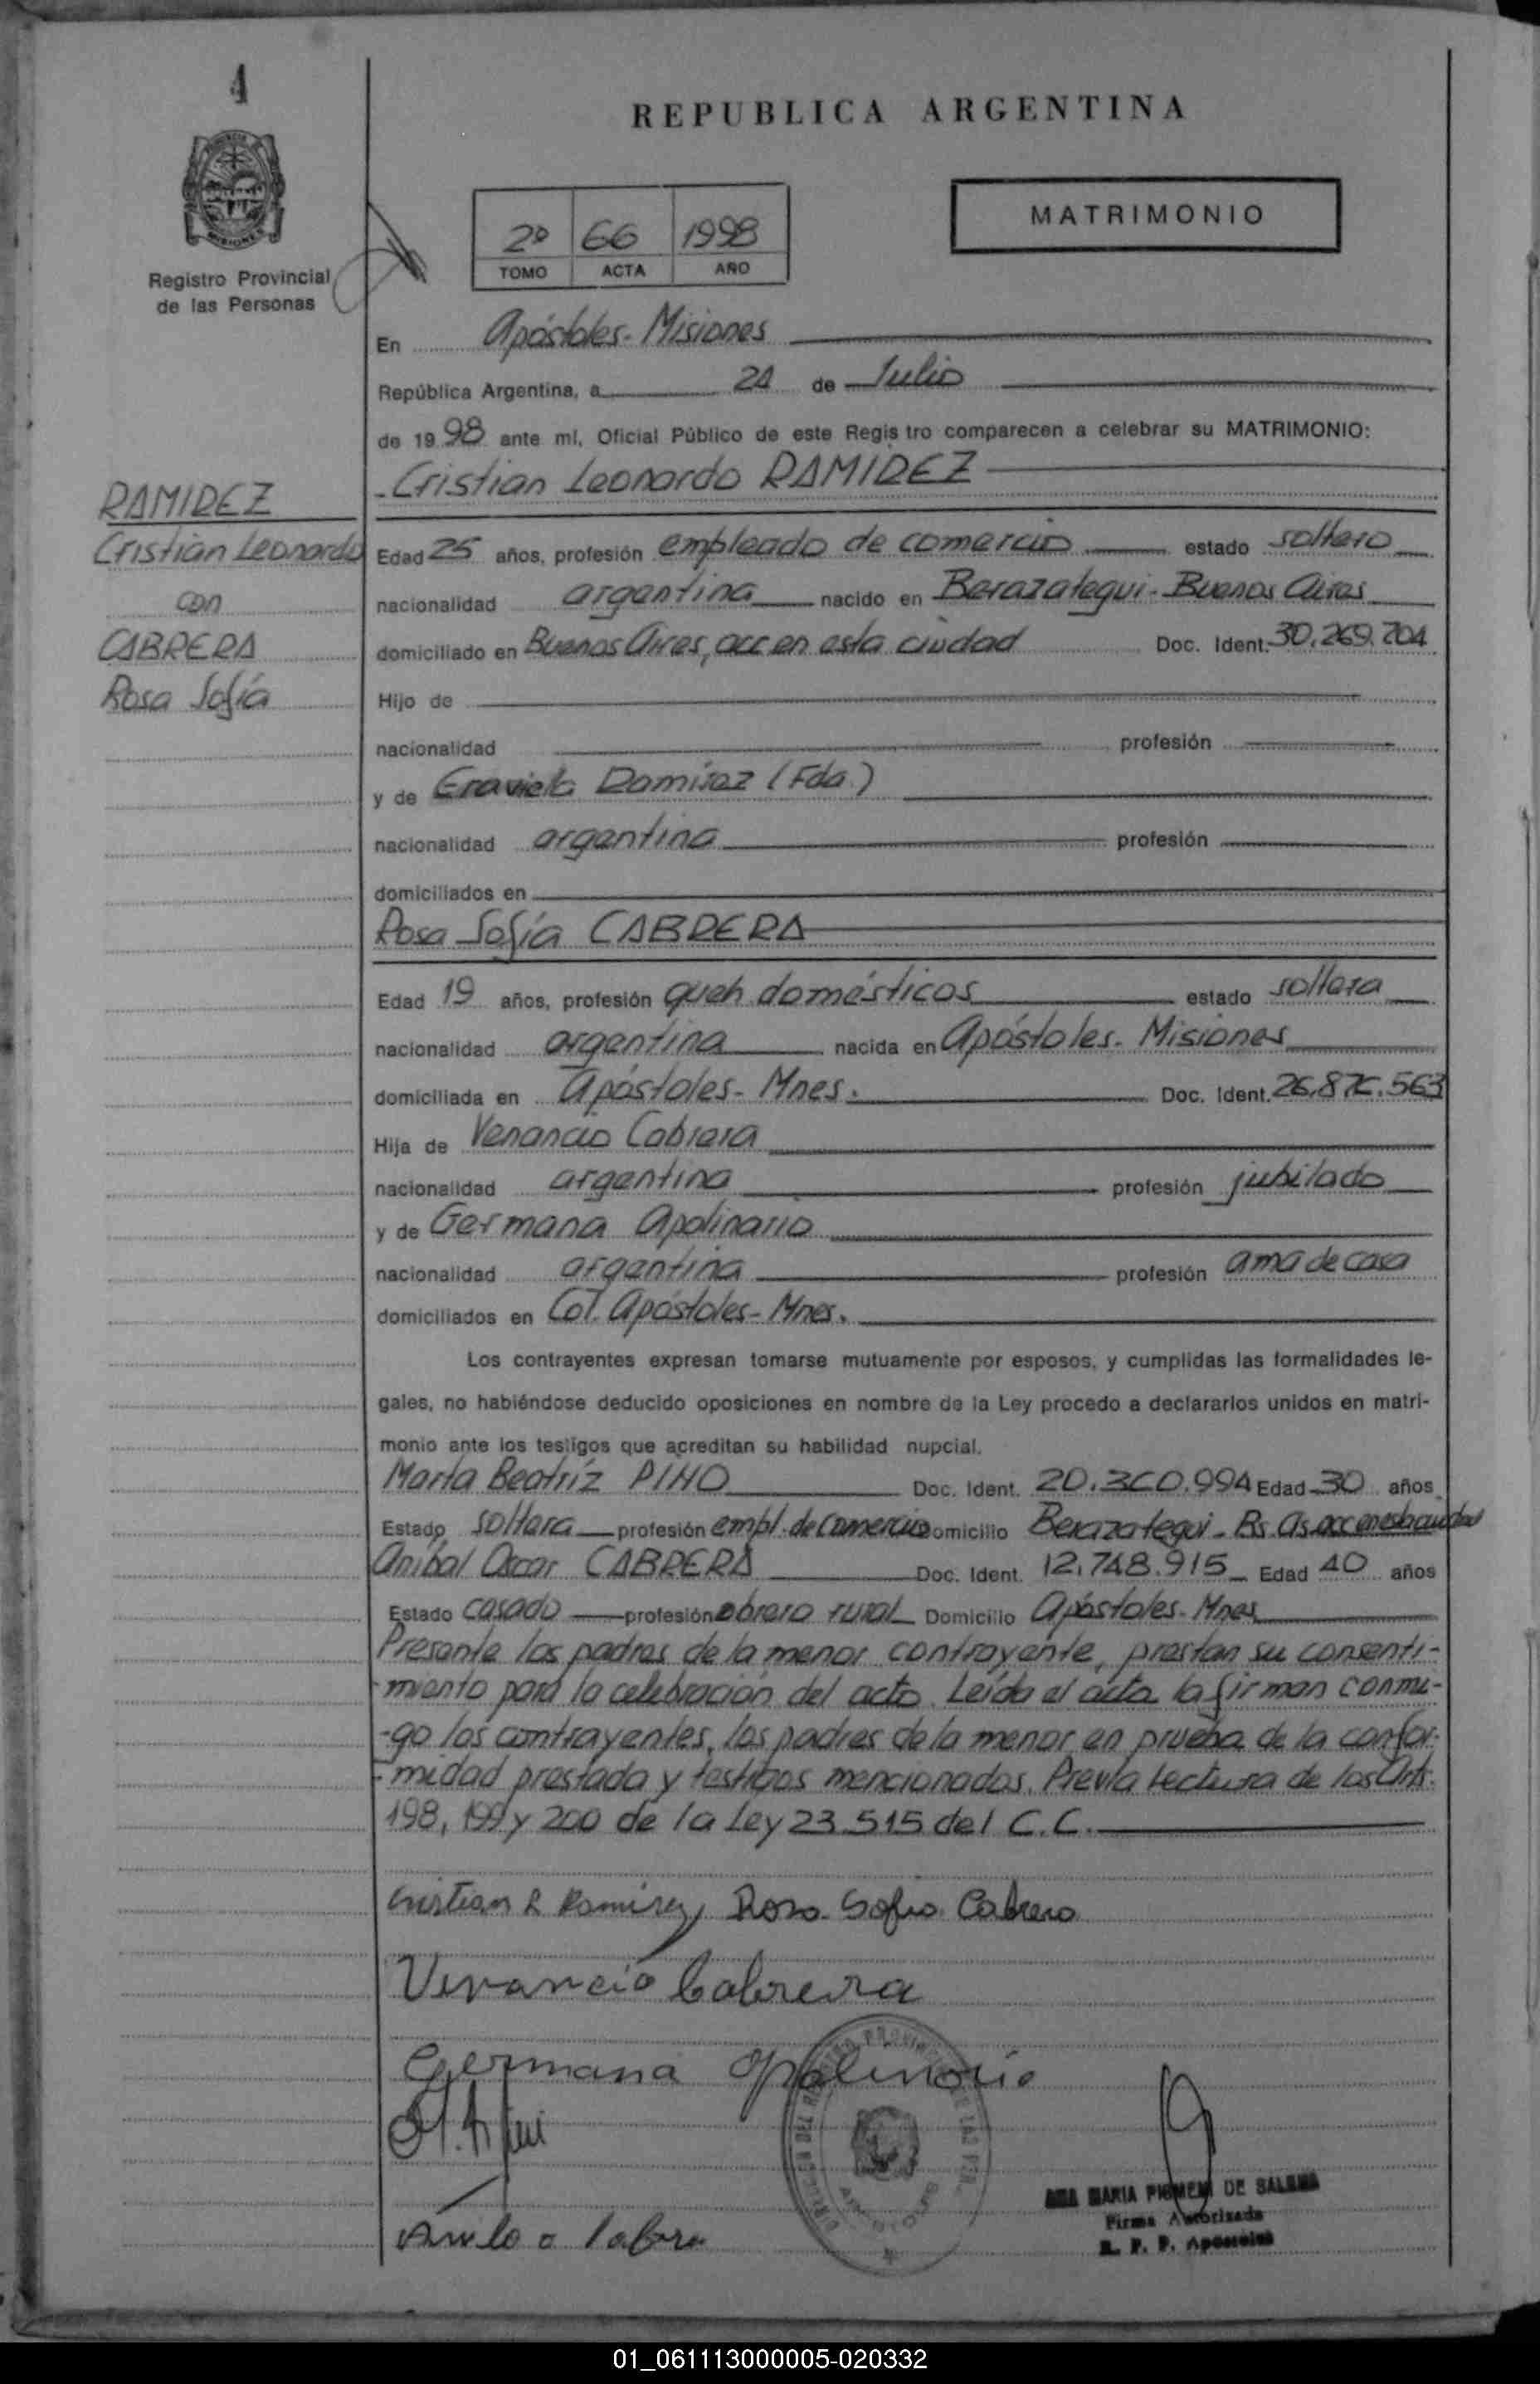 1
REPUBLICA ARGENTINA
MATRIMONIO
2º 66 1998
TOMO ACTA AÑO
Registro Provincial
de las Personas
En Apóstoles - Misiones
República Argentina, a 21 de Julio
de 1998 ante mí, Oficial Público de este Registro comparecen a celebrar su MATRIMONIO:
RAMIREZ
Cristian Leonardo
con
CABRERA
Rosa Sofía
Cristian Leonardo RAMIREZ
Edad 25 años, profesión empleado de comercio estado soltero
nacionalidad argentina nacido en Berazategui - Buenos Aires
domiciliado en Buenos Aires, acc en esta ciudad Doc. Ident. 30.269.704
Hijo de
nacionalidad profesión
y de Graviela Ramírez (Fda.)
nacionalidad argentina profesión
domiciliados en
Rosa Sofía CABRERA
Edad 19 años, profesión queh. domésticos estado soltera
nacionalidad argentina nacida en Apóstoles - Misiones
domiciliada en Apóstoles - Mnes. Doc. Ident.
Hija de Venancio Cabrera
nacionalidad argentina profesión jubilado
y de Germana Apolinario
nacionalidad argentina profesión ama de casa
domiciliados en Col. Apóstoles - Mnes.
Los contrayentes expresan tomarse mutuamente por esposos, y cumplidas las formalidades le-
gales, no habiéndose deducido oposiciones en nombre de la Ley procedo a declararlos unidos en matri-
monio ante los testigos que acreditan su habilidad nupcial.
Marta Beatríz PINO Doc. Ident. 20.360.994 Edad 30 años
Estado soltera profesión empl. de comercio Domicilio Berazategui - Bs As acc en esta ciudad
Anibal Oscar CABRERA Doc. Ident. 12.748.915 Edad 40 años
Estado casado profesión obrero rural Domicilio Apóstoles - Mnes
Presente los padres de la menor contrayente, prestan su consenti-
miento para la celebración del acto. Leída el acta la firman conmi-
-go los contrayentes, los padres de la menor en prueba de la confor-
-midad prestada y testigos mencionados. Previa lectura de los Arts.
198, 199 y 200 de la Ley 23.515 del C.C.
Cristian L Ramirez Rosa Sofia Cabrera
Venancio Cabrera
Germana Apolinario
ANA MARIA PIMENI DE SALEMA
Firma Autorizada
R. P. P. Apóstoles
01_061113000005-020332